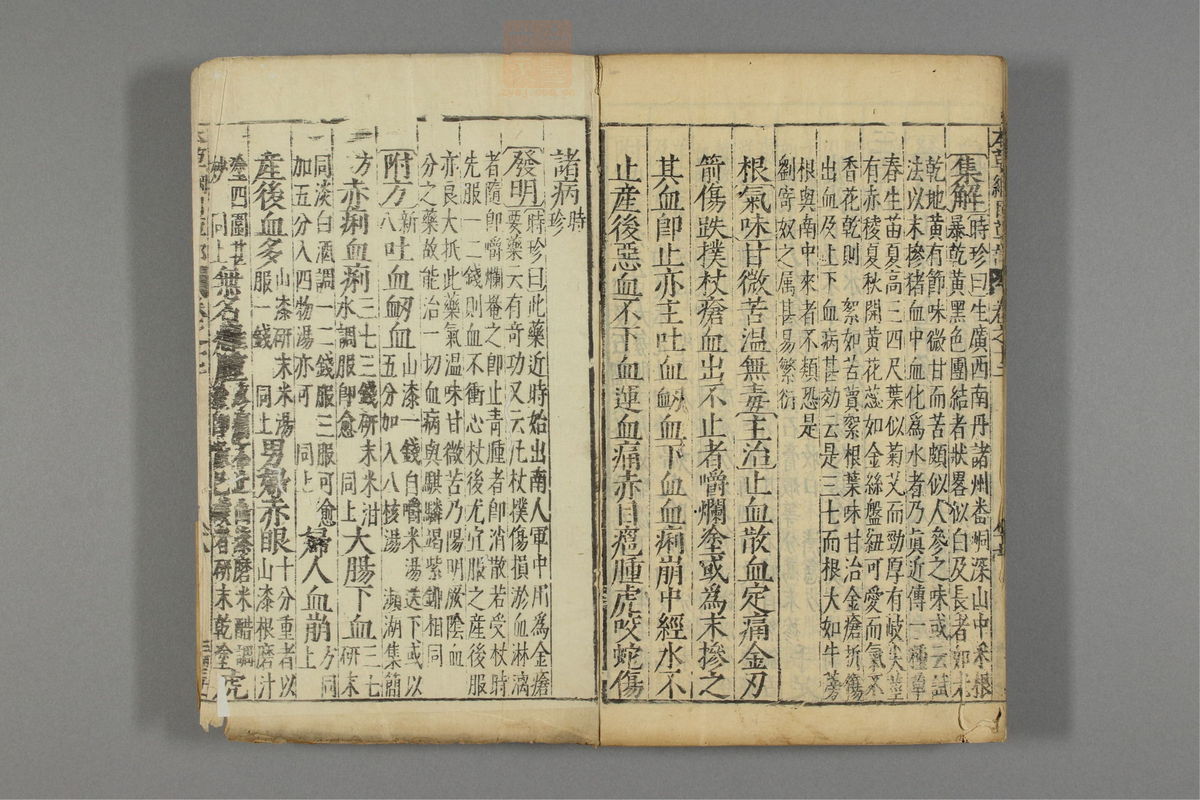 集解時珍曰生廣西南丹諸州番峒深山中采根
暴乾黃黑色團結者狀畧似白及長者如老
乾地黃有節味微甘而苦頗似人參之味或云試
法以末摻猪血中血化爲水者乃真近傳一種草
春生苗夏高三四尺葉似菊艾而勁厚有岐尖莖
有赤稜夏秋開黃花蕊如金絲盤紐可愛而氣不
香花乾則絮如苦蕒絮根葉味甘治金瘡折傷
出血及上下血病甚效云是三七而根大如牛蒡
根與南中來者不類恐是
劉寄奴之属甚易繁衍
根氣味甘微苦温無毒主治止血散血定痛金刃
箭傷跌撲杖瘡血出不止者嚼爛塗或為末摻之
其血即止亦主吐血衂血下血血痢崩中經水不
止産後惡血不下血運血痛赤目癰腫虎咬蛇傷
諸病時珍
發明時珍曰此藥近時始出南人軍中用為金瘡
要藥云有奇功又云凡杖撲傷損淤血淋漓
者隨即嚼爛罨之即止青腫者即消散若受杖時
先服一二錢則血不衝心杖後尤宜服之産後服
亦良大抵此藥氣温味甘微苦乃陽明厥陰血
分之藥故能治一切血病與騏驎竭紫鉚相同
附方新八吐血衂血山漆一錢自嚼米湯送下或以
五分加入八核湯 瀕湖集簡
方赤痢血痢三七三錢研末米泔
水調服即愈 同上大腸下血三七
研末
同淡白酒調一二錢服三服可愈
加五分入四物湯亦可 同上婦人血崩方同
上
産後血多山漆研末米湯
服一錢 同上男婦赤眼十分重者以
山漆根磨汁
塗四圍甚
妙 同上無名 山漆磨米醋調
者研末乾塗虎